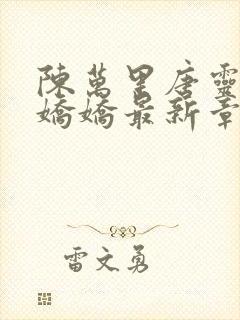 陳萬里唐靈
嬌嬌最新章
雷文勇